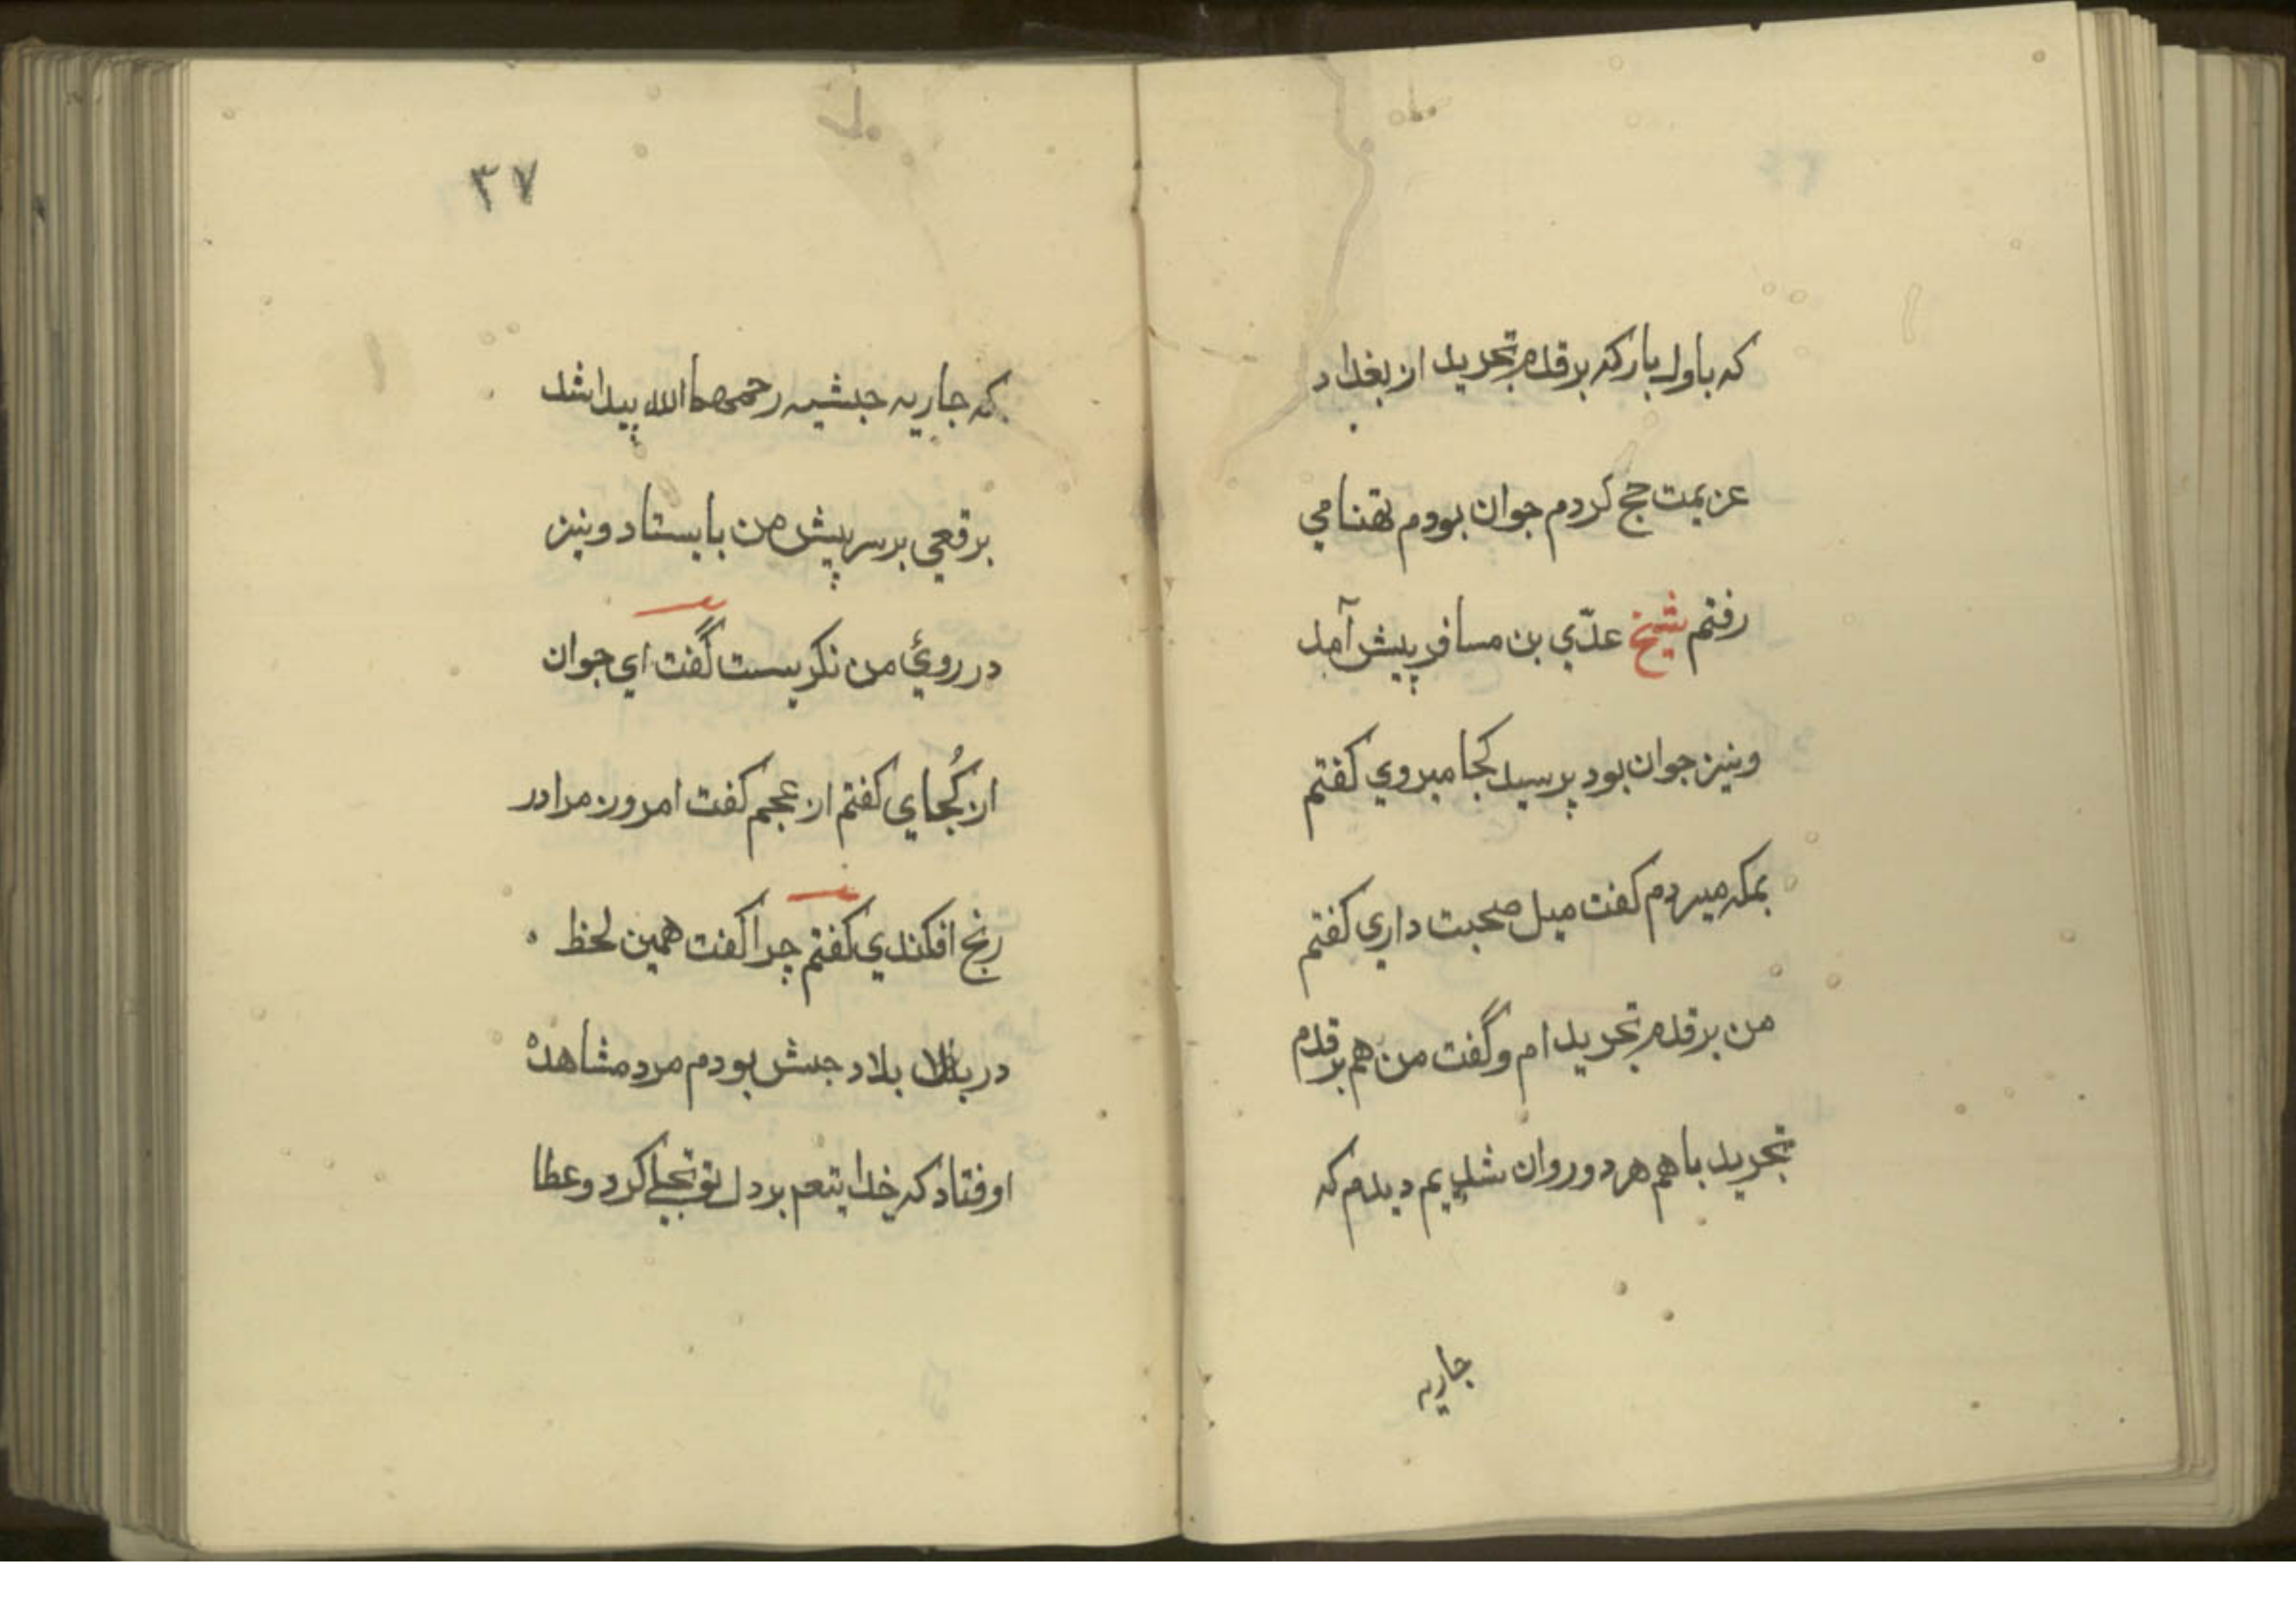 که باول بار که بر قدم تجرید از بغداد
عزیمت حج کردم جوان بودم تهنا مي
رفتم شیخ عدّي بن مسافر پیش آمد
ونیز جوان بود پرسید کجا میروي کفتم
بمکه میردم کفت میل صحبت داري کفتم
من بر قدم تجرید ام و گفت من هم بر قدم
تجرید با هم هر دو روان شدیم دیدم که
جاریه
۳۷
که جاریه حبشیه رحمهما الله پیدا شد
برقعي بر سر پیش من بایستاد ونیز
در روئ من نکریست گفت اي جوان
از کُجاي کفتم از عجم کفت امروز مرا در
رنج افکندي کفتم چرا کفت همین لحظ
در بلاد حبش بودم مرد مشاهدهٔ
اوفتاد که خدایتعم بر دل تو تجلي کرد وعطا